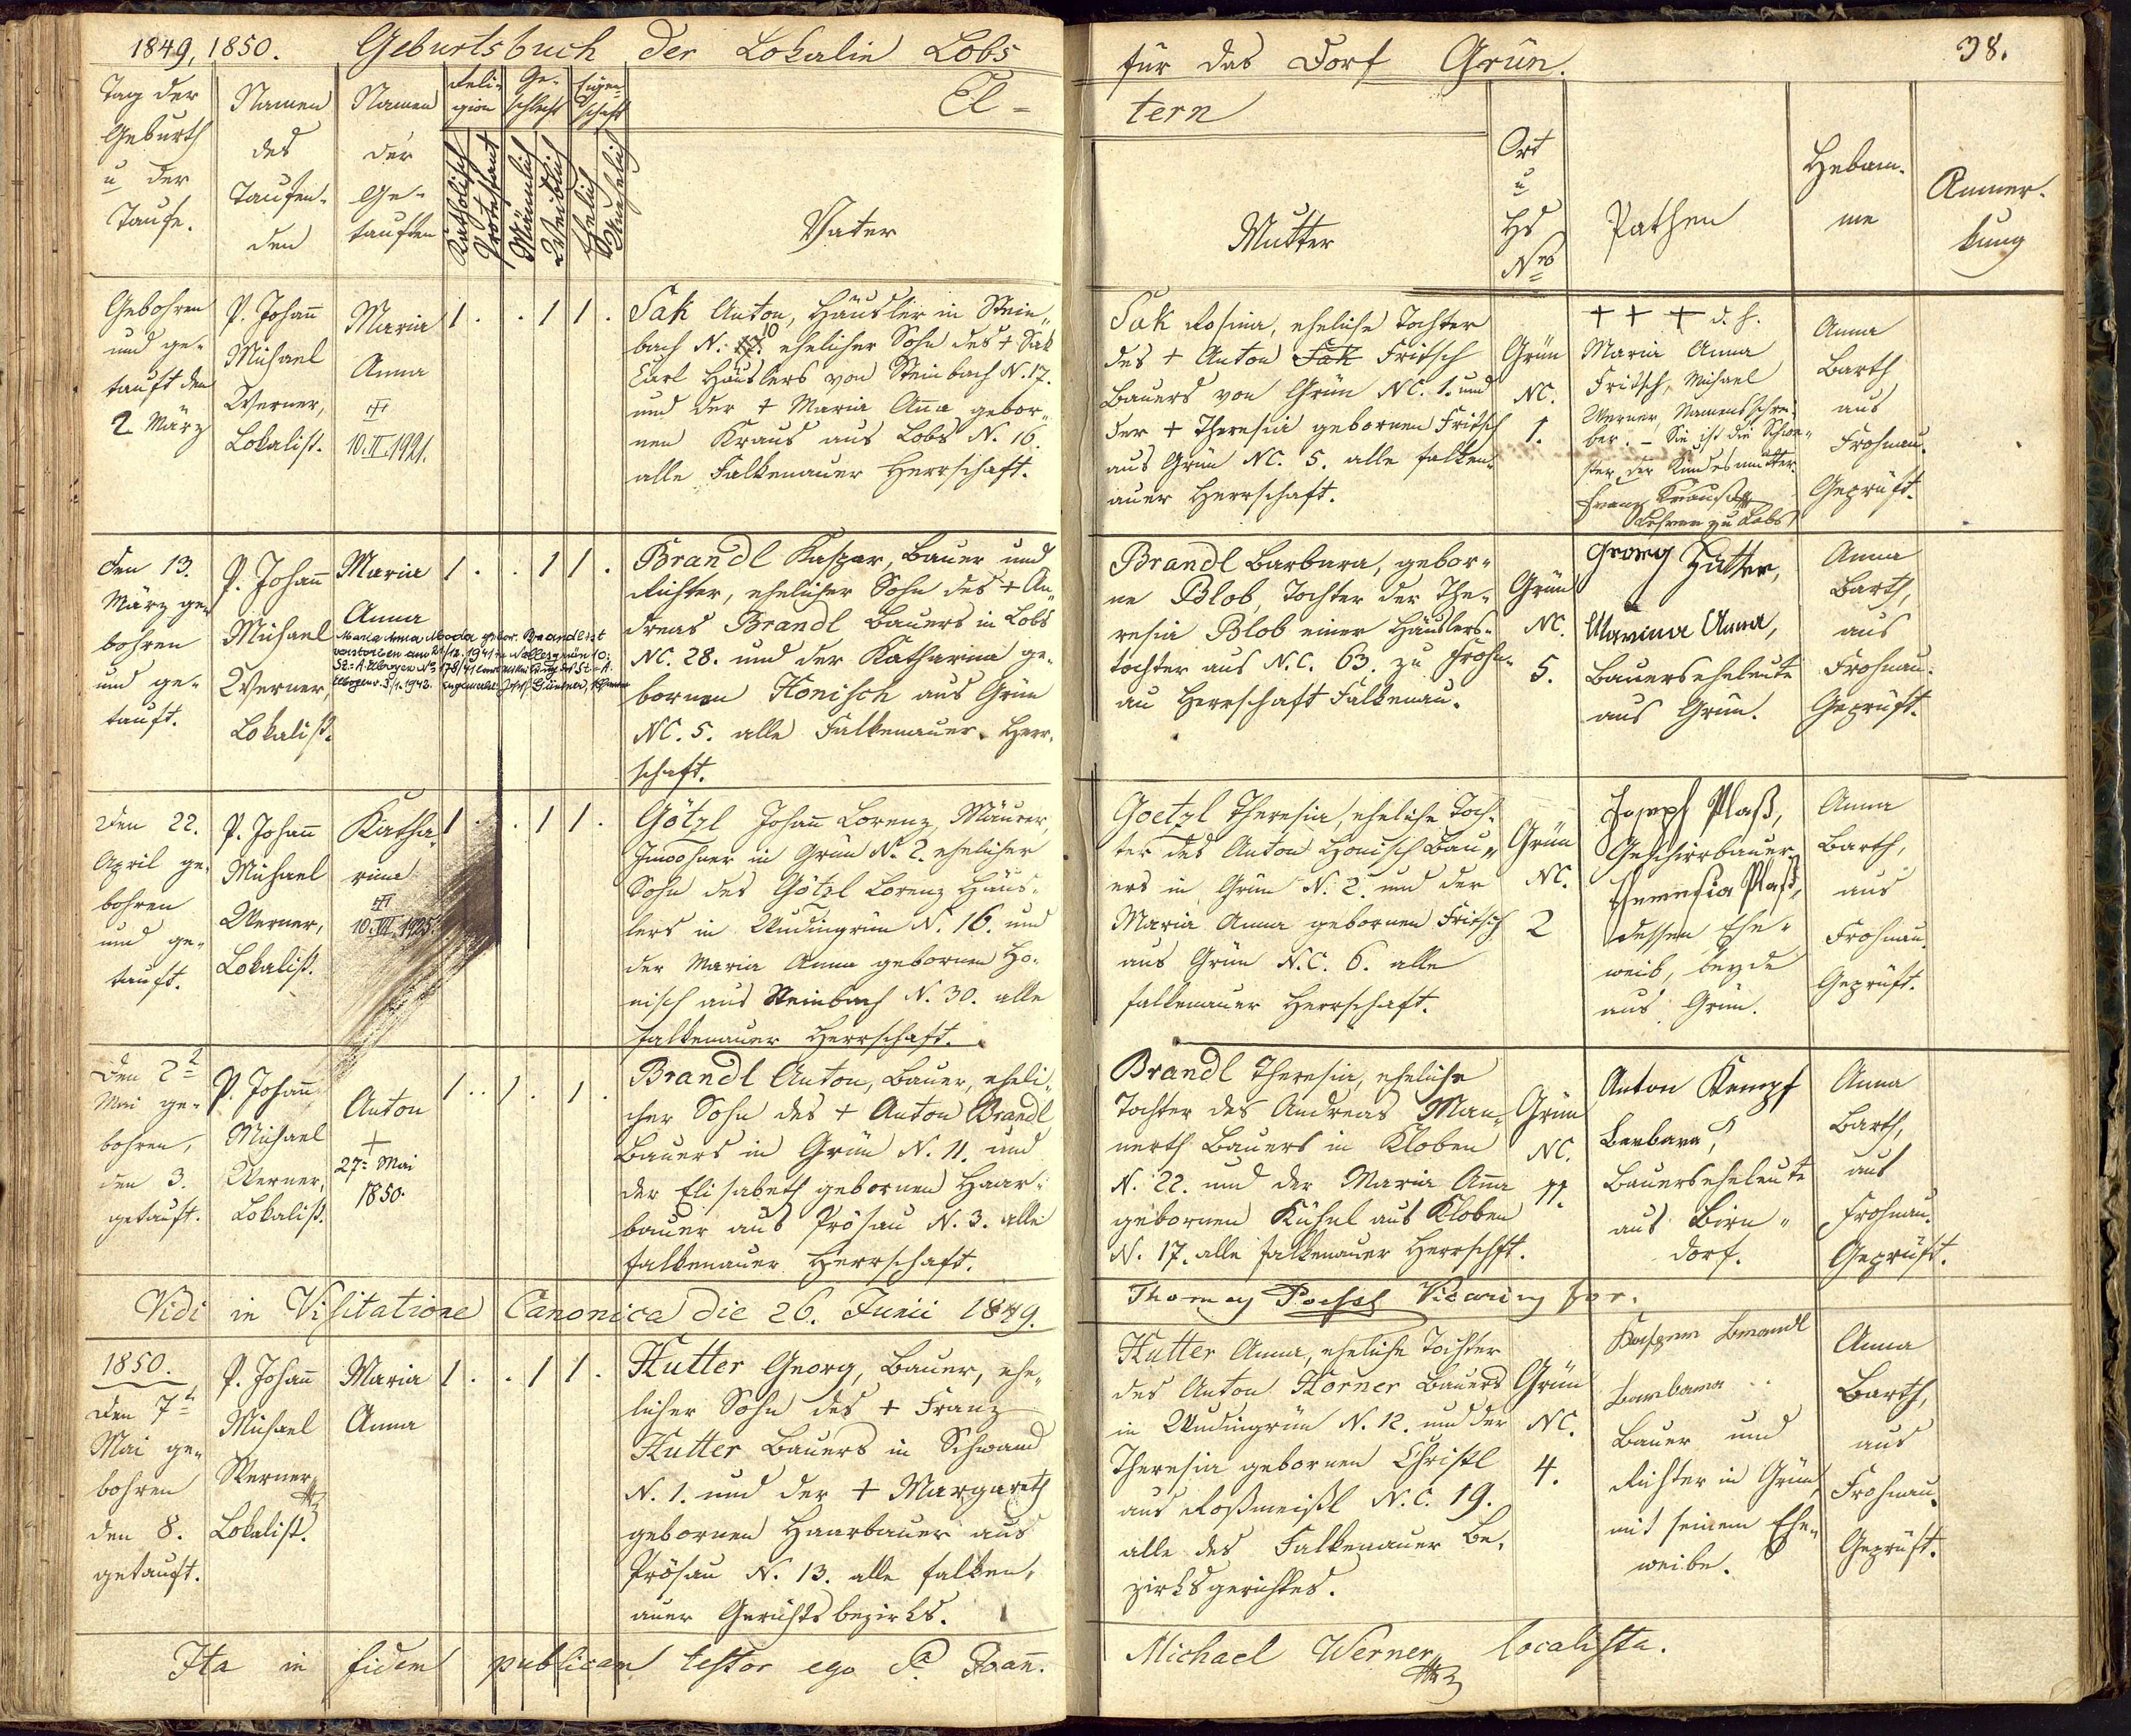 1849, 1850. Geburtsbuch der Lokalie Lobs
für das Dorf Grün.
38.
Tag der
Geburth
u der
Taufe.
Namen
des
Taufen-
den
Namen
der
Ge-
tauften
Reli-
gion
Katholisch
Protestant
Ge-
schlecht
Männlich
Weiblich
Eigen-
schaft
Ehelich
Unehelich
El-
tern
Vater
Mutter
Ort
u
Hs
Nro
Pathen
Hebam-
me
Anmer-
kung
Gebohren
und ge-
tauft den
2 März
P. Johann
Michael
Werner,
Lokalist.
Maria
Anna
10.II.1921.
1 . . 1 1 .
Sak Anton, Häusler in Stein-
bach N: 10 ehelicher Sohn des + Sak
Carl Häuslers von Steinbach N. 17.
und der + Maria Anna gebor-
nen Kraus aus Lobs N. 16.
alle Falkenauer Herrschaft.
Sak Rosina, eheliche Tochter
des + Anton Sak Fritsch
Bauers von Grün NC. 1. und
der + Theresia gebornen Fritsch
aus Grün NC. 5. alle falken-
auer Herrschaft.
Grün
NC.
1.
+ + + d. h.
Maria Anna
Fritsch, Michael
Werner, Namensschrei-
ber. – Sie ist die Schwe-
ster der Kindesmutter.
Franz Krauß
Lehrer zu Lobs
Anna
Barth
aus
Frohnau.
Geprüft.
Den 13.
März ge-
bohren
und ge-
tauft.
P. Johann
Michael
Werner,
Lokalist.
Maria
Anna
Maria Anna Moder gebor. Brandl ist
verstorben am 21/12. 1941 in Nallesgrün 10;
1 . . 1 1 .
Brandl Kaspar, Bauer und
Richter, ehelicher Sohn des + An-
dreas Brandl Bauers in Lobs
NC. 28. und der Katharina ge-
bornen Honisch aus Grün
NC. 5. alle Falkenauer Herr-
schaft.
Brandl Barbara, gebor-
ne Blob, Tochter der The-
resia Blob einer Häuslers-
tochter aus N.C. 63. zu Frohn-
au Herrschaft Falkenau.
Grün
NC.
5.
Georg Hutter,
Marina Anna,
Bauerseheleute
aus Grün.
Anna
Barth,
aus
Frohnau.
Geprüft.
Den 22.
April ge-
bohren
und ge-
tauft.
P. Johann
Michael
Werner,
Lokalist.
Katha-
rina
10.VII.1925.
1 . . 1 1 .
Götzl Johann Lorenz, Maurer,
Inwohner in Grün N. 2. ehelicher
Sohn des Götzl Lorenz Häus-
lers in Rudingrün N. 16. und
der Maria Anna gebornen Ho-
nisch aus Steinbach N. 30. alle
falkenauer Herrschaft.
Goetzl Theresia, eheliche Toch-
ter des Anton Honisch Bau-
ers in Grün N. 2. und der
Maria Anna gebornen Fritsch
aus Grün N.C. 6. alle
falkenauer Herrschaft.
Grün
NC.
2
Joseph Plaß,
Geschirrbauer
Theresia Plaß,
dessen Ehe-
weib, beyde
aus Grün.
Anna
Barth,
aus
Frohnau.
Geprüft.
Den 2t
Mai ge-
bohren,
den 3.
getauft.
P. Johann
Michael
Werner,
Lokalist.
Anton
+
27. Mai
1850.
1 . . 1 . 1 .
Brandl Anton, Bauer, eheli-
cher Sohn des + Anton Brandl
Bauers in Grün N. 11. und
der Elisabeth gebornen Haar-
bauer aus Prösau N. 3. alle
falkenauer Herrschaft.
Brandl Theresia, eheliche
Tochter des Andreas Man-
nerth Bauers in Kloben
N. 22. und der Maria Anna
gebornen Kühnl aus Kloben
N. 17. alle falkenauer Herrschft.
Grün
NC.
11.
Anton Kempf
Barbara,
Bauerseheleute
aus Birn-
dorf.
Anna
Barth,
aus
Frohnau.
Geprüft.
Vidi in Visitatione Canonica die 26. Junii 1849.
Thomas Poessl Vicarius for.
1850.
Den 7t
Mai ge-
bohren
den 8.
getauft.
P. Johann
Michael
Werner
Lokalist.
Maria
Anna
1 . . 1 1 .
Hutter Georg, Bauer, ehe-
licher Sohn des + Franz
Hutter Bauers in Schwand
N. 1. und der + Margareth
gebornen Haarbauer aus
Prösau N. 13. alle falken-
auer Gerichtsbezirks.
Hutter Anna, eheliche Tochter
des Anton Horner Bauers
in Rudingrün N. 12. und der
Theresia gebornen Christl
aus Roßmeißl N.C. 19.
alle des Falkenauer Be-
zirksgerichtes.
Grün
NC.
4.
Kaspar Brandl
Barbara
Bauer und
Richter in Grün,
mit seinem Ehe-
weibe.
Anna
Barth,
aus
Frohnau.
Geprüft.
Ita in fidem publicam testor ego P. Joann.
Michael Werner, localista.